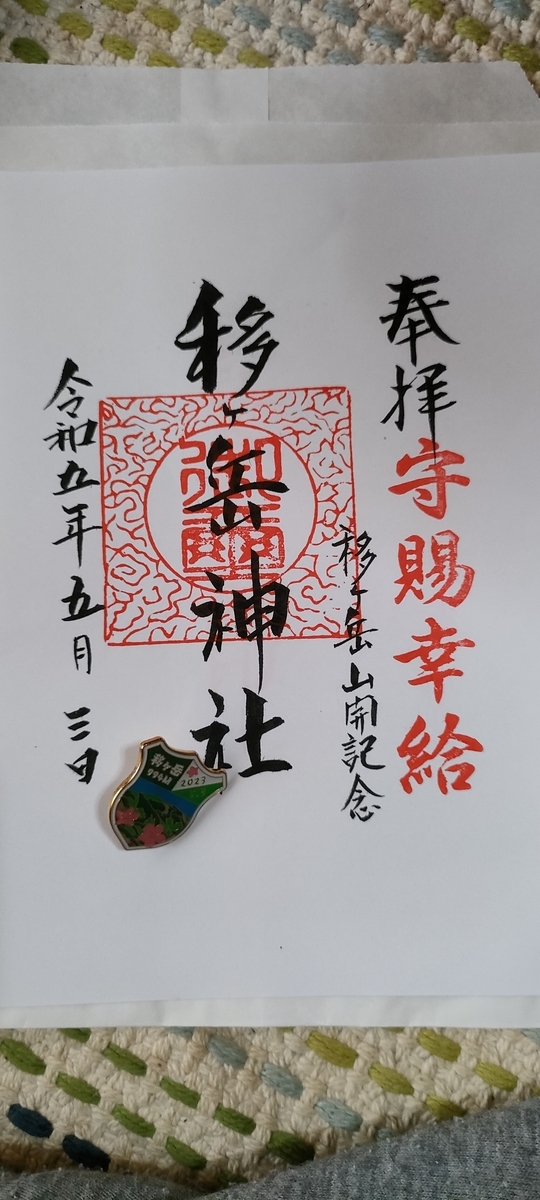 奉拝
守賜幸給
移ヶ岳山開記念
移ヶ岳神社
令和五年五月三日
移ヶ岳
994M
2023